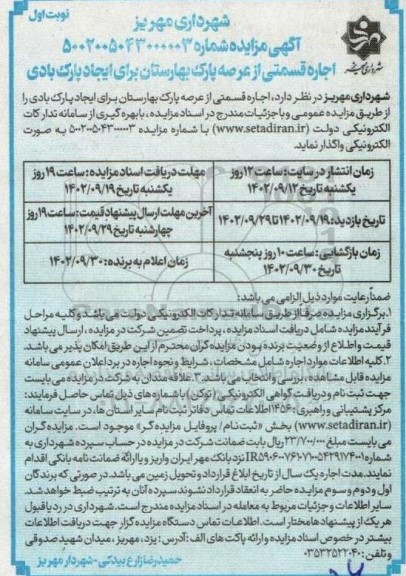 نوبت اول
شهرداری مهریز
آگهی مزایده شماره ۵۰۰۲۰۰۵۰۴۳۰۰۰۰۰۳
اجاره قسمتی از عرصه پارک بهارستان برای ایجاد پارک بادی
شهرداری مهریز در نظر دارد، اجاره قسمتی از عرصه پارک بهارستان برای ایجاد پارک بادی را
از طریق مزایده عمومی و با جزئیات مندرج در اسناد مزایده، با بهره گیری از سامانه تدارکات
الکترونیکی دولت (www.setadiran.ir) با شماره مزایده ۵۰۰۲۰۰۵۰۴۳۰۰۰۰۰۳ به صورت
الکترونیکی واگذار نماید.
زمان انتشار در سایت: ساعت ۱۲ روز
یکشنبه تاریخ ۱۴۰۲/۰۹/۱۲
مهلت دریافت اسناد مزایده: ساعت ۱۹ روز
یکشنبه تاریخ ۱۴۰۲/۰۹/۱۹
تاریخ بازدید: ۱۴۰۲/۰۹/۱۹ تا ۱۴۰۲/۰۹/۲۹
آخرین مهلت ارسال پیشنهاد قیمت: ساعت ۱۹ روز
چهارشنبه تاریخ ۱۴۰۲/۰۹/۲۹
زمان بازگشایی: ساعت ۱۰ روز پنجشنبه
تاریخ ۱۴۰۲/۰۹/۳۰
زمان اعلام به برنده: ۱۴۰۲/۰۹/۳۰
ضمناً رعایت موارد ذیل الزامی می باشد:
۱. برگزاری مزایده صرفاً از طریق سامانه تدارکات الکترونیکی دولت می باشد و کلیه مراحل
فرآیند مزایده شامل دریافت اسناد مزایده، پرداخت تضمین شرکت در مزایده، ارسال پیشنهاد
قیمت و اطلاع از وضعیت برنده بودن مزایده گران محترم از این طریق امکان پذیر می باشد.
۲. کلیه اطلاعات موارد اجاره شامل مشخصات، شرایط و نحوه اجاره در برد اعلان عمومی سامانه
مزایده قابل مشاهده، بررسی و انتخاب می باشد. ۳. علاقه مندان به شرکت در مزایده می بایست
جهت ثبت نام و دریافت گواهی الکترونیکی (توکن) با شماره های ذیل تماس حاصل فرمایند:
مرکز پشتیبانی و راهبری: ۱۴۵۶ اطلاعات تماس دفاتر ثبت نام سایر استان ها، در سایت سامانه
(www.setadiran.ir) بخش «ثبت نام / پروفایل مزایده گر» موجود است. مزایده گران
می بایست مبلغ ۲۳/۷۰۰/۰۰۰ ریال بابت ضمانت شرکت در مزایده در حساب سپرده شهرداری به
شماره IR نزد بانک مهر ایران واریز و یا ارائه ضمانت نامه بانکی اقدام
نمایند. مدت اجاره یک سال از تاریخ ابلاغ قرارداد و تحویل زمین می باشد. در صورتی که برندگان
اول و دوم و سوم مزایده حاضر به انعقاد قرارداد نشوند سپرده آنان به ترتیب ضبط خواهد شد.
سایر اطلاعات و جزئیات مربوط به معامله در اسناد مزایده مندرج است. شهرداری در رد یا قبول
هر یک از پیشنهادها مختار است. اطلاعات تماس دستگاه مزایده گزار جهت دریافت اطلاعات
بیشتر در خصوص اسناد مزایده و ارائه پاکت های الف: آدرس: یزد، مهریز، میدان شهید صدوقی
و تلفن: ۰۳۵۳۲۵۲۲۰۴۰
حمیدرضا زارع بیدکی - شهردار مهریز